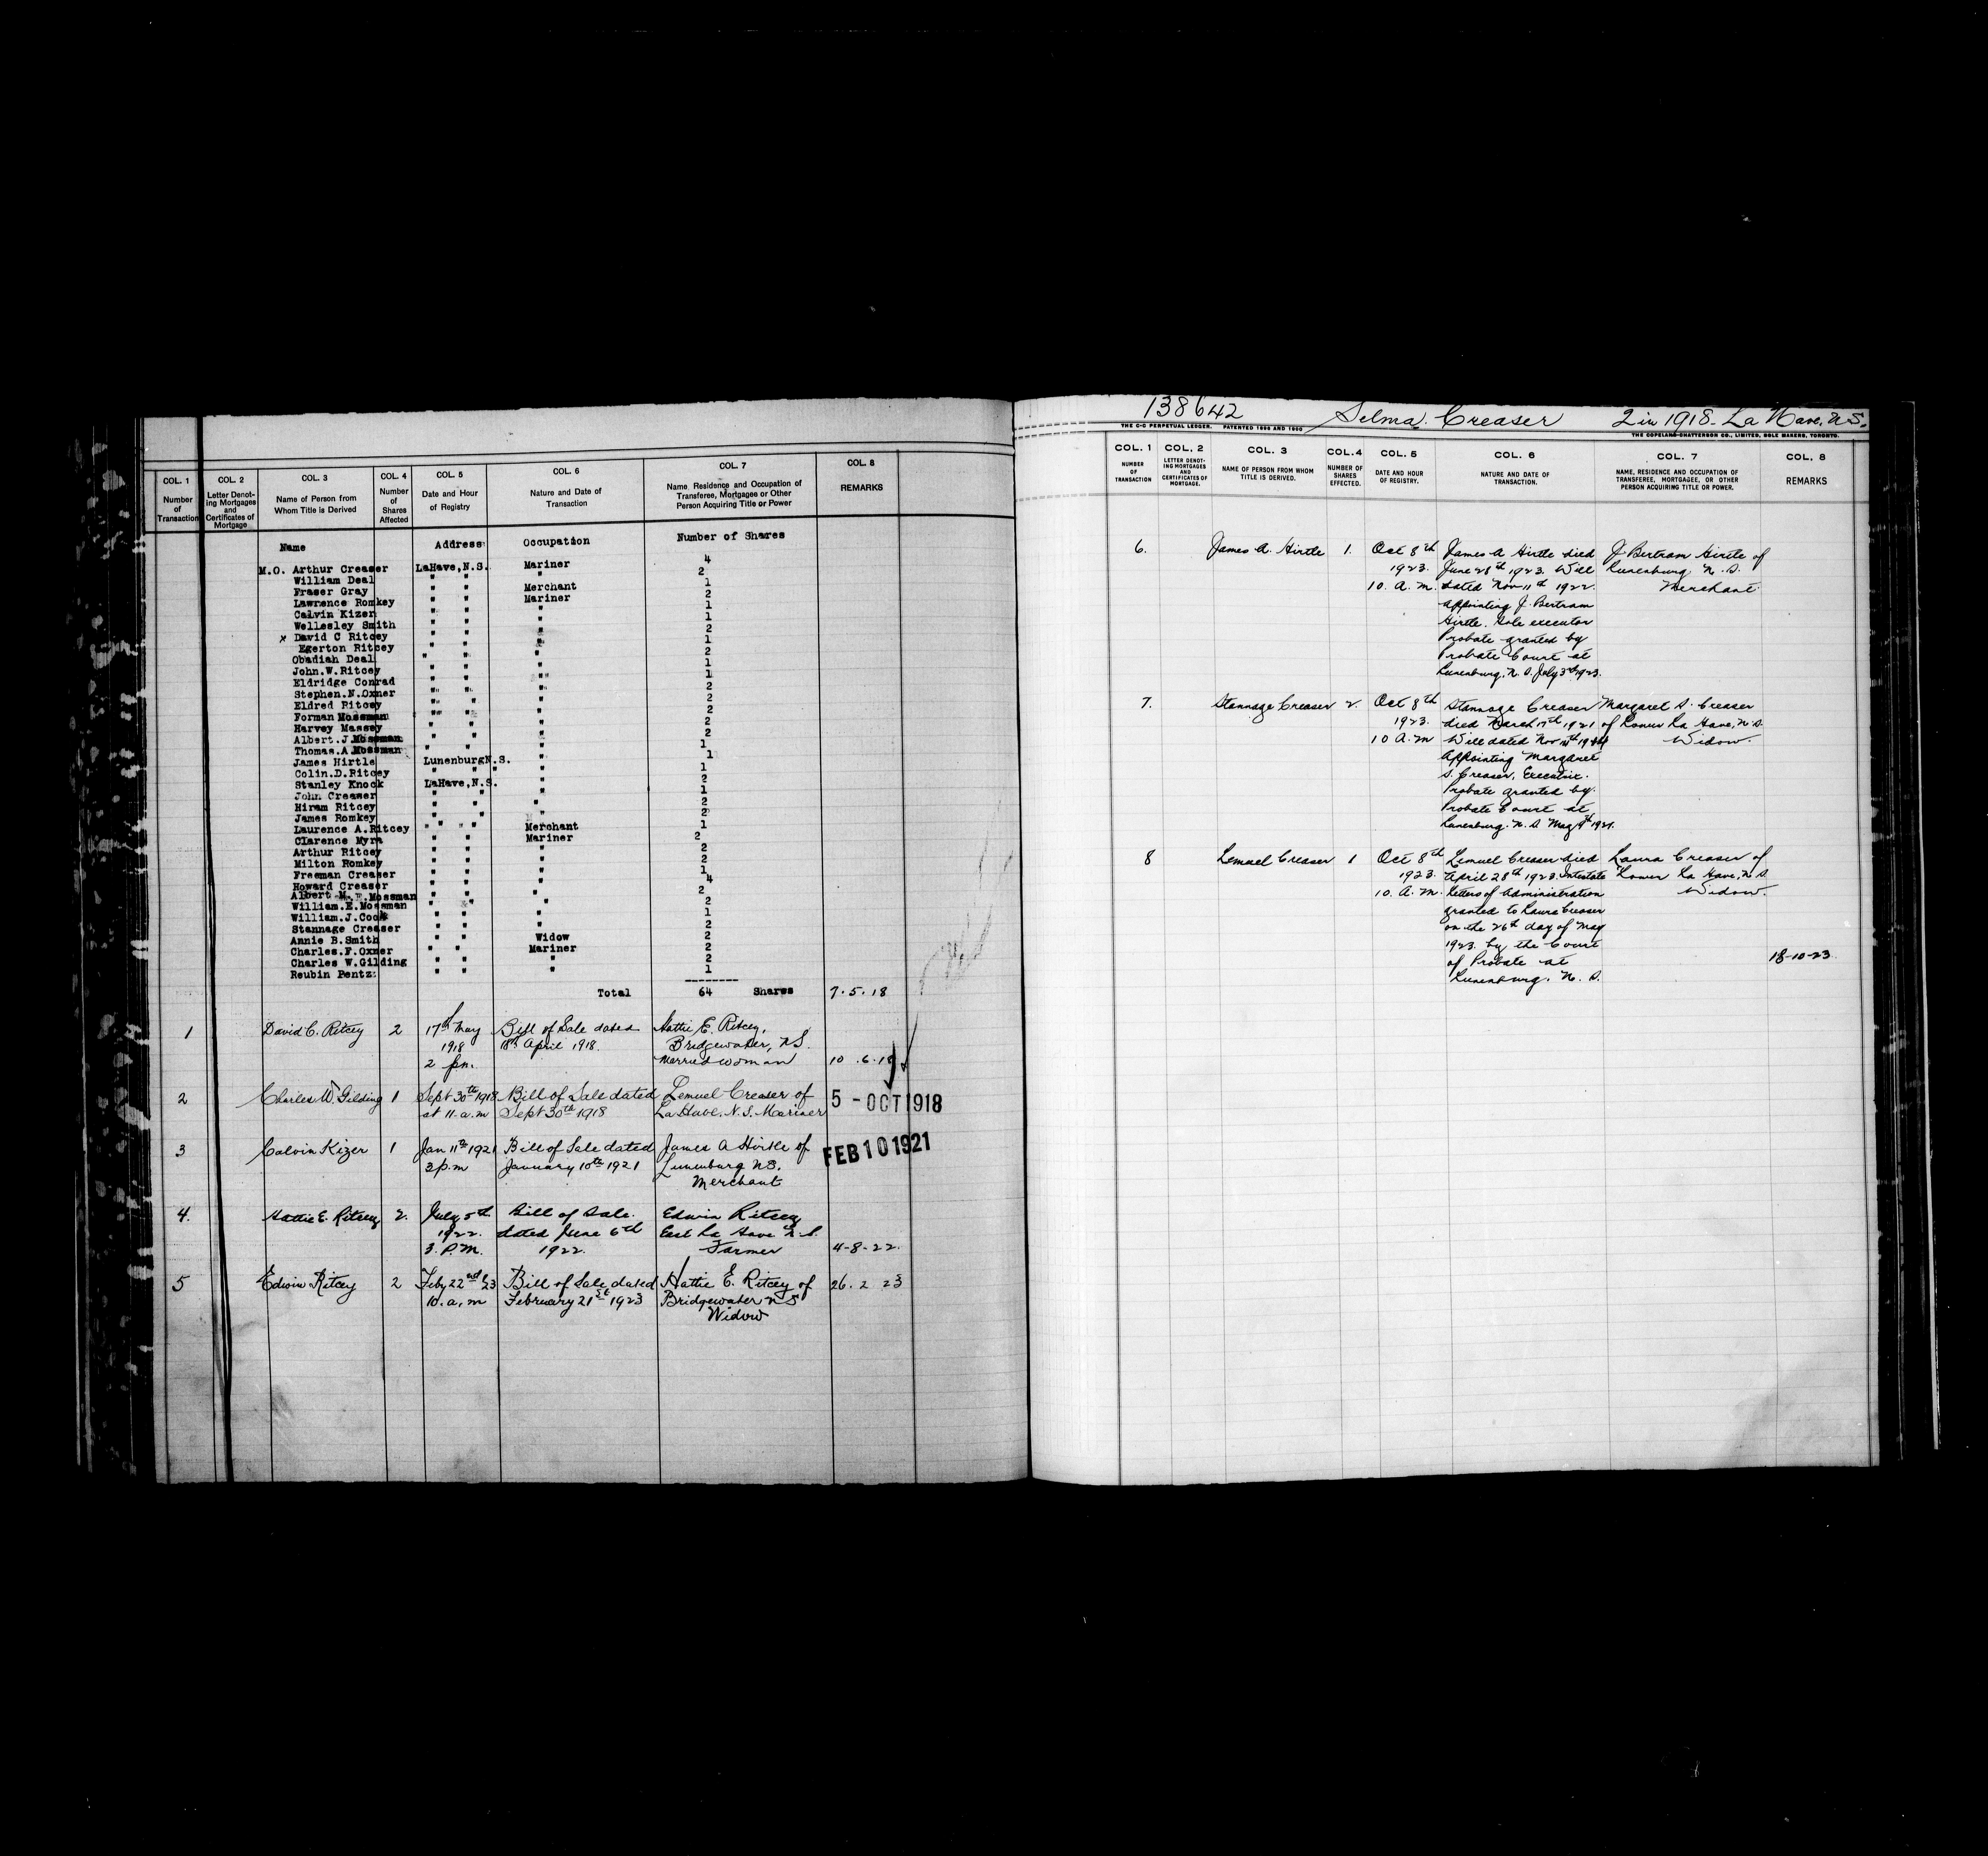 COL. 1 COL. 2 COL. 3 COL. 4 COL. 5 COL. 6 COL. 7 COL. 8
Number of Transaction
Letter Denoting Mortgages and Certificates of Mortgage
Name of Person from Whom Title is Derived
Number of Shares Affected
Date and Hour of Registry
Nature and Date of Transaction
Name, Residence and Occupation of Transferee, Mortgagee or Other Person Acquiring Title or Power
REMARKS
Name Address Occupation Number of Shares
M.O. Arthur Creaser LaHave, N.S. Mariner 4
William Deal " " " 2
Fraser Gray " " Merchant 1
Lawrence Romkey " " Mariner 2
Calvin Kizer " " " 1
Wellesley Smith " " " 1
x David C Ritcey " " " 2
Egerton Ritcey " " " 1
Obadiah Deal " " " 2
John.W.Ritcey " " " 1
Eldridge Conrad " " " 1
Stephen.N.Oxner " " " 2
Eldred Ritcey " " " 2
Forman Mossman " " " 2
Harvey Massey " " " 2
Albert.J.Mossman " " " 2
Thomas.A.Mossman " " " 1
James Hirtle LunenburgN.S. " 1
Colin.D.Ritcey " " " 1
Stanley Knock LaHave,N.S. " 2
John Creaser " " " 1
Hiram Ritcey " " " 2
James Romkey " " " 2
Laurence A.Ritcey " " Merchant 1
Clarence Myra " " Mariner 2
Arthur Ritcey " " " 2
Milton Romkey " " " 2
Freeman Creaser " " " 1
Howard Creaser " " " 4
Albert M. Mossman " " " 2
William.E.Mossman " " " 2
William.J.Cook " " " 1
Stannage Creaser " " " 2
Annie B.Smith " " Widow 2
Charles.F.Oxner " " Mariner 2
Charles W.Gilding " " " 2
Reubin Pentz " " " 1
Total 64 Shares 7.5.18
1 David C. Ritcey 2 17th May Bill of Sale dated Hattie E. Ritcey,
1918 18th April 1918. Bridgewater, N.S.
2 pm. Married Woman 10.6.18
2 Charles W. Gilding 1 Sept 30th 1918 Bill of Sale dated Lemuel Creaser of 5 - OCT 1918
at 11. a.m Sept 30th 1918 La Have, N.S. Mariner
3 Calvin Kizer 1 Jan 11th 1921 Bill of Sale dated James A Hirtle of FEB 10 1921
3 p.m January 10th 1921 Lunenburg N.S.
Merchant
4. Hattie E. Ritcey 2. July 5th Bill of Sale. Edwin Ritcey
1922. dated June 6th East La Have N.S.
3. P.M. 1922. Farmer 4-8-22.
5 Edwin Ritcey 2 Feby 22nd 23 Bill of Sale dated Hattie E. Ritcey of 26. 2 23
10. a.m February 21st 1923 Bridgewater N S
Widow
138642 Selma Creaser 2 in 1918 - La Have, N.S.
THE C-C PERPETUAL LEDGER. PATENTED 1896 AND 1900 THE COPELAND-CHATTERSON CO., LIMITED, SOLE MAKERS, TORONTO.
COL. 1 COL. 2 COL. 3 COL.4 COL. 5 COL. 6 COL. 7 COL. 8
NUMBER OF TRANSACTION
LETTER DENOTING MORTGAGES AND CERTIFICATES OF MORTGAGE.
NAME OF PERSON FROM WHOM TITLE IS DERIVED.
NUMBER OF SHARES EFFECTED.
DATE AND HOUR OF REGISTRY.
NATURE AND DATE OF TRANSACTION.
NAME, RESIDENCE AND OCCUPATION OF TRANSFEREE, MORTGAGEE, OR OTHER PERSON ACQUIRING TITLE OR POWER.
REMARKS
6. James A. Hirtle 1. Oct 8th James A Hirtle died J Bertram Hirtle of
1923. June 28th 1923. Will Lunenburg. N. S.
10. A. M. dated Nov 11th 1922. Merchant
appointing J. Bertram
Hirtle. Sole executor
Probate granted by
Probate Court at
Lunenburg. N. S. July 3rd 1923.
7. Stannage Creaser 2. Oct 8th Stannage Creaser Margaret S. Creaser
1923. died March 17th 1921 of Lower La Have, N.S.
10 A.M Will dated Nov 14th Widow.
appointing Margaret
S. Creaser, Executrix.
Probate granted by
Probate Court at
Lunenburg. N. S. May 9th 1921.
8 Lemuel Creaser 1 Oct 8th Lemuel Creaser died Laura Creaser of
1923. April 28th 1923. Intestate Lower La Have, N.S.
10. A. M. Letters of Administration Widow.
granted to Laura Creaser
on the 26th day of May
1923. by the Court
of Probate at 18-10-23
Lunenburg. N. S.